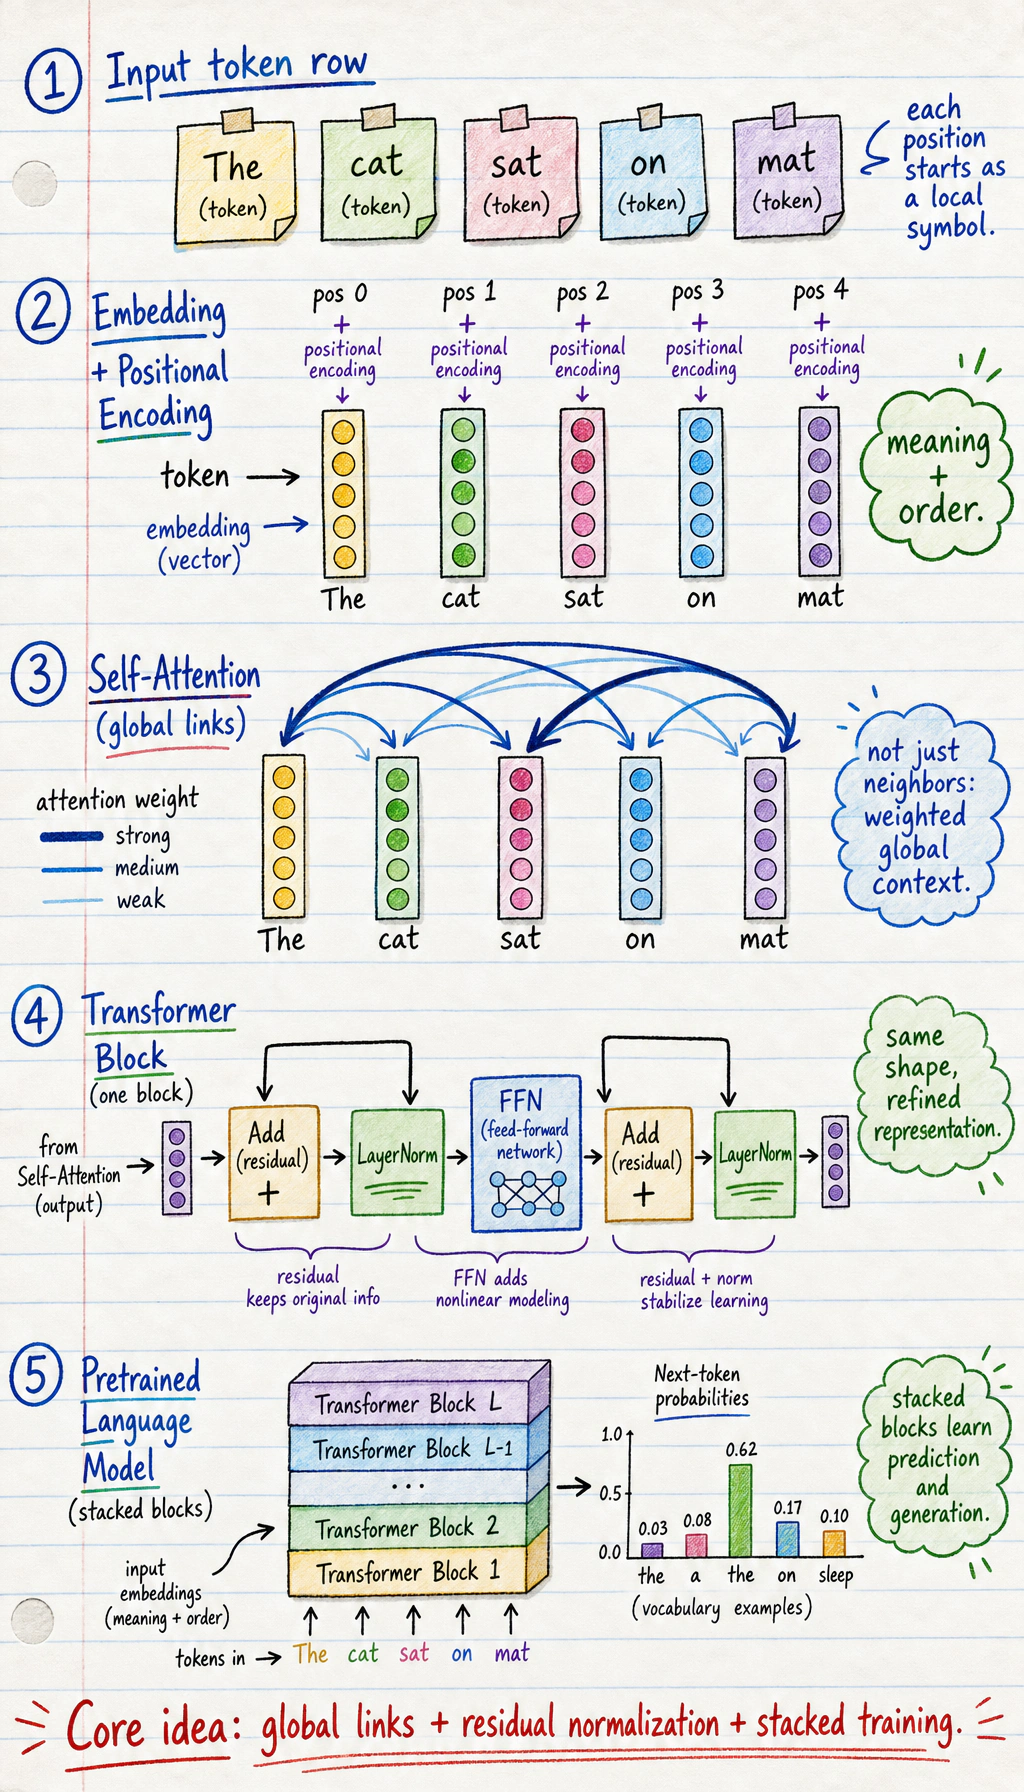 1 Input token row
The
(token)
cat
(token)
sat
(token)
on
(token)
mat
(token)
each
position
starts as
a local
symbol.
2 Embedding
+ Positional
Encoding
pos 0
+
positional
encoding
pos 1
+
positional
encoding
pos 2
+
positional
encoding
pos 3
+
positional
encoding
pos 4
+
positional
encoding
token
embedding
(vector)
The
cat
sat
on
mat
meaning
+
order.
3 Self-Attention
(global links)
attention weight
strong
medium
weak
The
cat
sat
on
mat
not just
neighbors:
weighted
global
context.
4 Transformer
Block
(one block)
from
Self-Attention
(output)
Add
(residual)
+
LayerNorm
FFN
(feed-forward
network)
Add
(residual)
+
LayerNorm
residual
keeps original info
FFN adds
nonlinear modeling
residual + norm
stabilize learning
same
shape,
refined
representation.
5 Pretrained
Language
Model
(stacked blocks)
input
embeddings
(meaning + order)
Transformer Block L
Transformer Block L-1
...
Transformer Block 2
Transformer Block 1
tokens in
The
cat
sat
on
mat
Next-token
probabilities
1.0
0.5
0.0
0.03
0.08
0.62
0.17
0.10
the
a
the
on
sleep
(vocabulary examples)
stacked
blocks learn
prediction
and
generation.
Core idea: global links + residual normalization + stacked training.